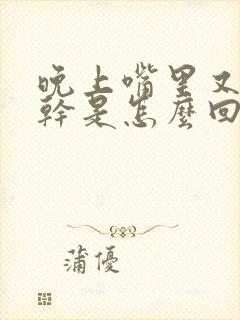 晚上嘴里又
幹是怎麼回
蒲優